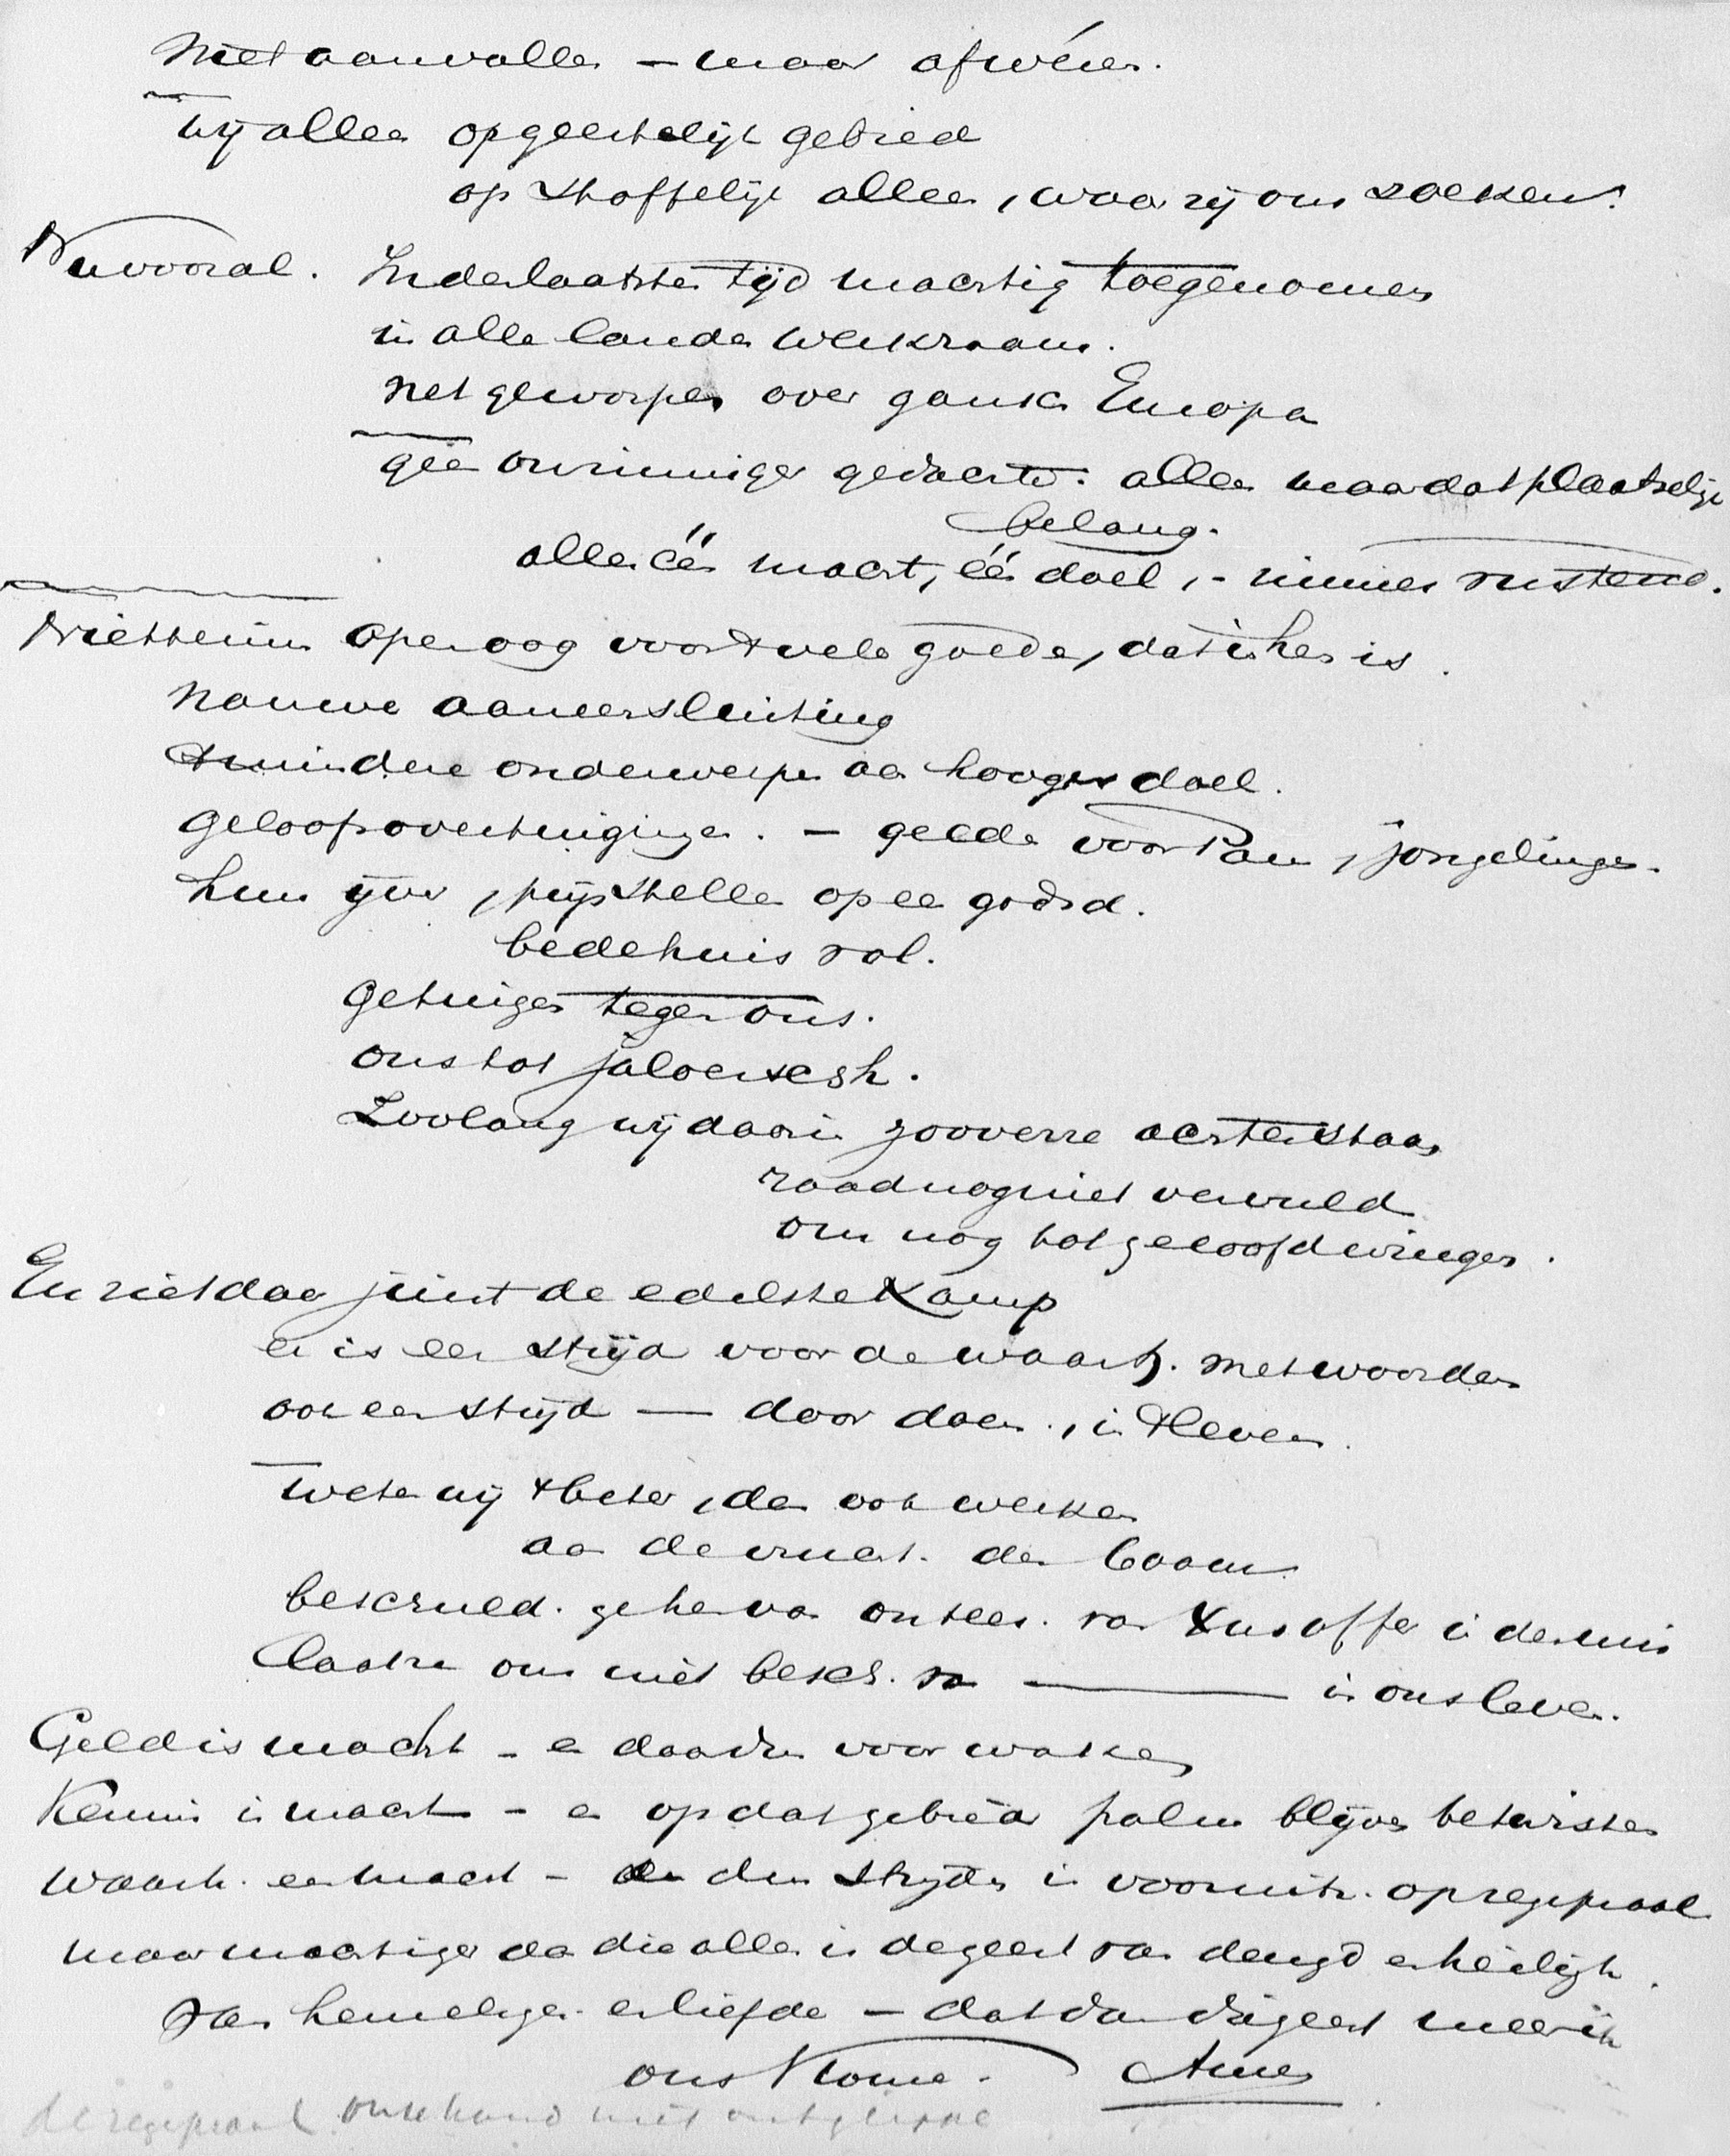 Niet aanvallen – maar afweren.
wij alleen op geestelijk gebied
op stoffelijk alleen, waar zij ons zoeken.
Nu vooral. In de laatsten tijd machtig toegenomen
in alle landen werkzaam.
net geworpen over gansch Europa
geen onzinnige gedachte. alleen maar dat plaatselijk
belang.
allen één macht, één doel, – nimmer rustend.
Niettemin open oog voor 't vele goede, dat in hen is.
nauwe aaneensluiting
't mindere onderwerpen aan hooger doel.
geloofsovertuigingen. – gelden voor Paus, jongelingen.
hun ijver, prijs stellen op een godsd.
bedehuis vol.
getuigen tegen ons.
ons tot jaloerschh.
Zoolang wij daarin zooverre achterstaan
raad nog niet vervuld
om nog tot geloof dwingen.
En niet daar juist de edelste Kamp
er is een strijd voor de waarh. met woorden
ook een strijd — door daden, in 't leven.
weten wij 't beter, dan ook werken
aan de vrucht den boom
beschuld. geheven ontker. van Xus offer in de mis
laat ze ons niet besch. van ——— in ons leven.
Geld is macht – en daarvoor waken
Kennis is macht – en op dat gebied palm blijven betwisten
waarh. een macht – en den strijd en in vooruitz. op zegepraal
maar machtiger dan die allen is de geest van deugd en heiligh.
van hemelzin en liefde – dat dan die geest meer in
ons Kome. Amen
de zegepraal onze hand niet ontglippe